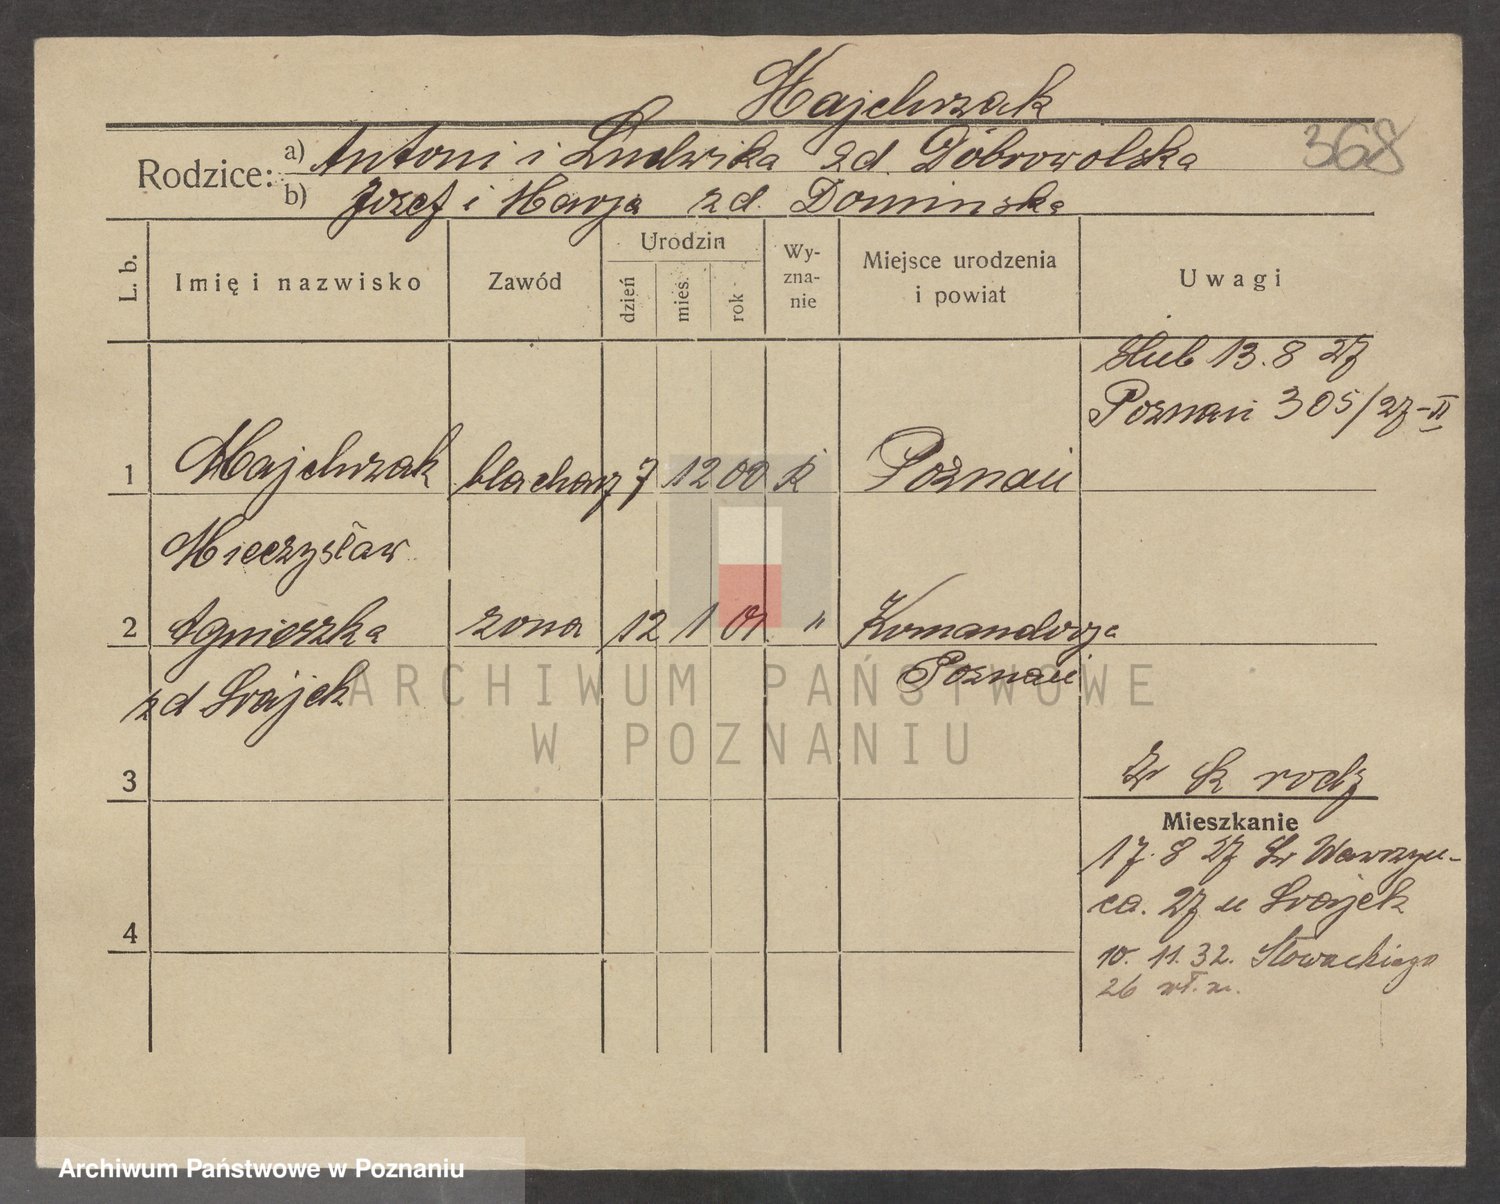 Majchrzak
368
Rodzice: a) Antoni i Ludwika zd. Dobrowolska
b) Józef i Marja zd. Domińska
L. b.
Imię i nazwisko
Zawód
Urodzin
dzień
mies.
rok
Wy-
zna-
nie
Miejsce urodzenia
i powiat
Uwagi
Ślub 13. 8 27
Poznań 305/27-II
1 Majchrzak blacharz 7 12 00 k Poznań
Mieczysław
2 Agnieszka żona 12 1 01. " Komandorja
zd Krajek Poznań
3
k rodz
Mieszkanie
17. 8 27 Św Wawrzyń-
ca. 27 u Krajek
4
10. 11. 32. Słowackiego
26 wł. m.
ARCHIWUM PAŃSTWOWE
W POZNANIU
Archiwum Państwowe w Poznaniu